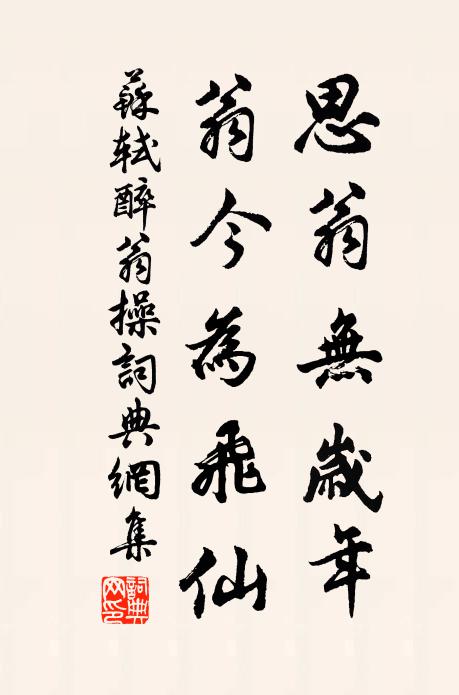 思翁無歲年
翁今為飛仙
蘇軾醉翁操詞典網集
詞典网印